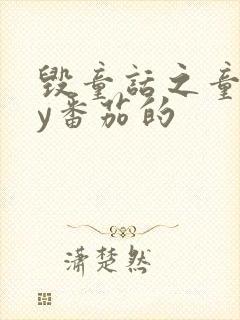 毁童话之童
y番茄的
潇楚然